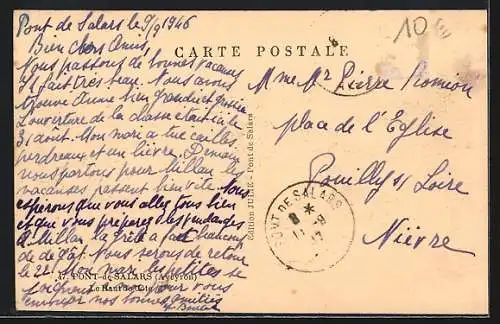 Pont de Salars le 9/9 1946
Bien chers Amis,
Nous passons de bonnes vacances
Il fait très beau. Nous avons
L'ouverture de la chasse était le
31 août. Mon mari a tué cailles,
perdreaux et un lièvre. Demain
nous partons pour Millau les
vacances passent bien vite. Nous
espérons que vous allez tous bien
et que vous
Millau la grêle a fait beaucoup
de dégât. Nous serons de retour
le 22. Mon mari les petites se
joignent à moi pour vous
envoyer nos bonnes amitiés
CARTE POSTALE
10
Mme Mr Pierre Romion
place de l'Eglise
Pouilly s/ Loire
Nièvre
PONT DE SALARS
Edition JURE - Pont de Salars
PONT-de-SALARS (Aveyron)
Le Haut de Côte